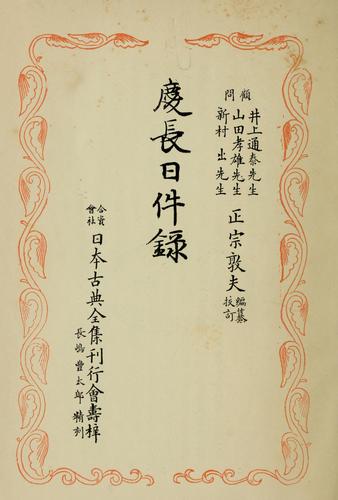 顧問
井上通泰先生
山田孝雄先生
新村 出先生
正宗敦夫
編纂
校訂
慶長日件錄
合資
會社
日本古典全集刊行會壽梓
長嶋豐太郎精刻